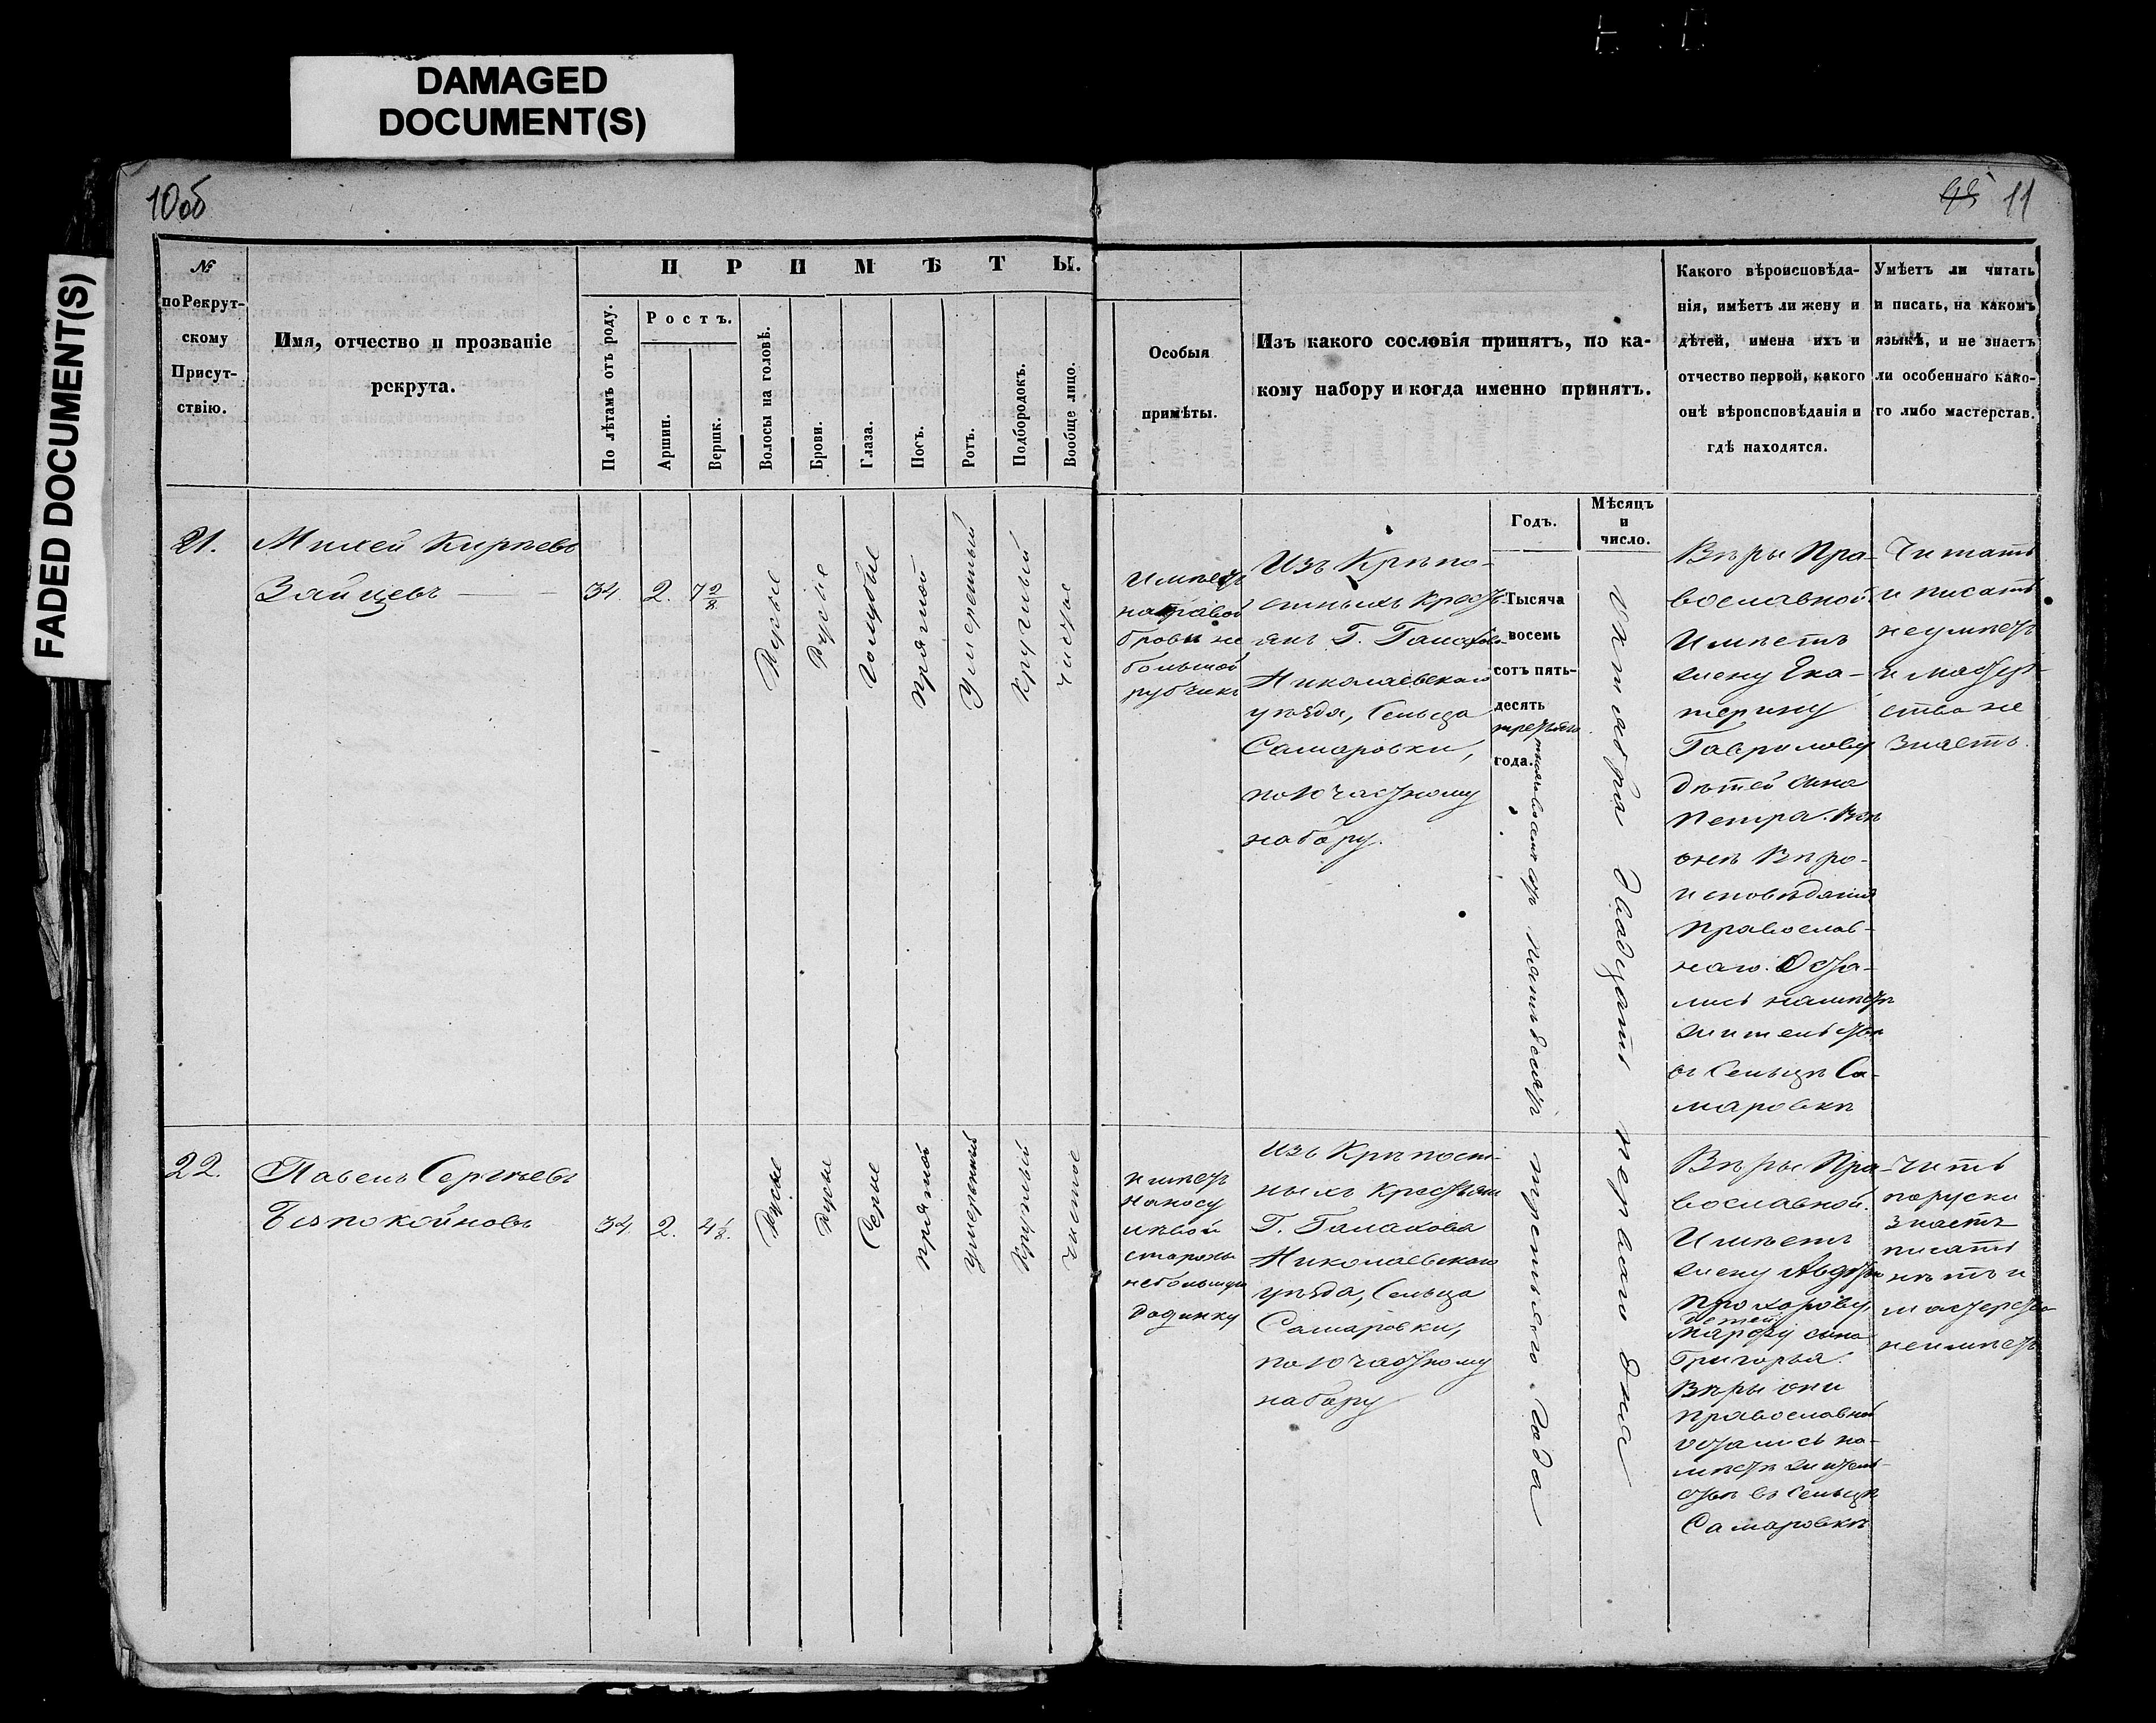 DAMAGED
DOCUMENT(S)
FADED DOCUMENT(S)
10об
11
№
по Рекрут-
скому
Присут-
ствію.
Имя, отчество и прозваніе
рекрута.
ПРИМѢТЫ.
По лѣтамъ отъ роду.
Ростъ.
Аршин.
Вершк.
Волосы на головѣ.
Брови.
Глаза.
Носъ.
Ротъ.
Подбородокъ.
Вообще лицо.
Особыя
примѣты.
Изъ какого сословія принятъ, по ка-
кому набору и когда именно принятъ.
Годъ.
Мѣсяцъ
и
число.
Какого вѣроисповѣда-
нія, имѣетъ ли жену и
дѣтей, имена ихъ и
отчество первой, какого
онѣ вѣроисповѣданія и
гдѣ находятся.
Умѣетъ ли читать
и писать, на какомъ
языкѣ, и не знаетъ
ли особеннаго како-
го либо мастерства.
21.
Михей Кирѣевъ
Зайцевъ
34.
2.
7 2/8
Русые
Русые
Голубые
Прямой
Умеренный
Круглый
Чистое
Имѣетъ
на правой
брови не
большой
рубчикъ
Изъ Крѣпо-
стныхъ кресть-
янъ Г.
Николаевскаго
уѣзда, Сельца
Самаровки,
по 10 частному
набору.
Тысяча
восемь
сотъ пять-
десять
третьяго
года.
тысяча восемь сотъ пятьдесятъ третьяго года
Октября двадцать перваго дня
Вѣры Пра-
вославной.
Имѣетъ
жену Ека-
терину
Гаврилову
дѣтей сына
Петра. Всѣ
онѣ Вѣро-
исповѣданія
Православ-
наго. Оста-
лись на мѣстѣ
жительства
въ Сельцѣ Са-
маровкѣ
Читать
и писать
не умѣетъ
и мастер-
ства не
знаетъ.
22.
Павелъ Сергѣевъ
Безпокойновъ
34.
2.
4 1/8.
Русые
Русые
Серые
Прямой
Умеренный
Круглый
Чистое
имѣетъ
на носу
лѣвой
стороны
небольшую
Изъ Крѣпост-
ныхъ крестьян
Г. Галахова
Николаевскаго
уѣзда, Сельца
Самаровки,
по 10 частному
набору
Вѣры Пра-
вославной.
Имѣетъ
жену Авдотью
Прохорову,
детей
Марфу сына
Григорья.
Вѣры они
православной
остались на
мѣстѣ житель-
ства въ Сельцѣ
Самаровкѣ
Чить
поруски
знаетъ
писать
нѣтъ и
мастерства
неимѣетъ